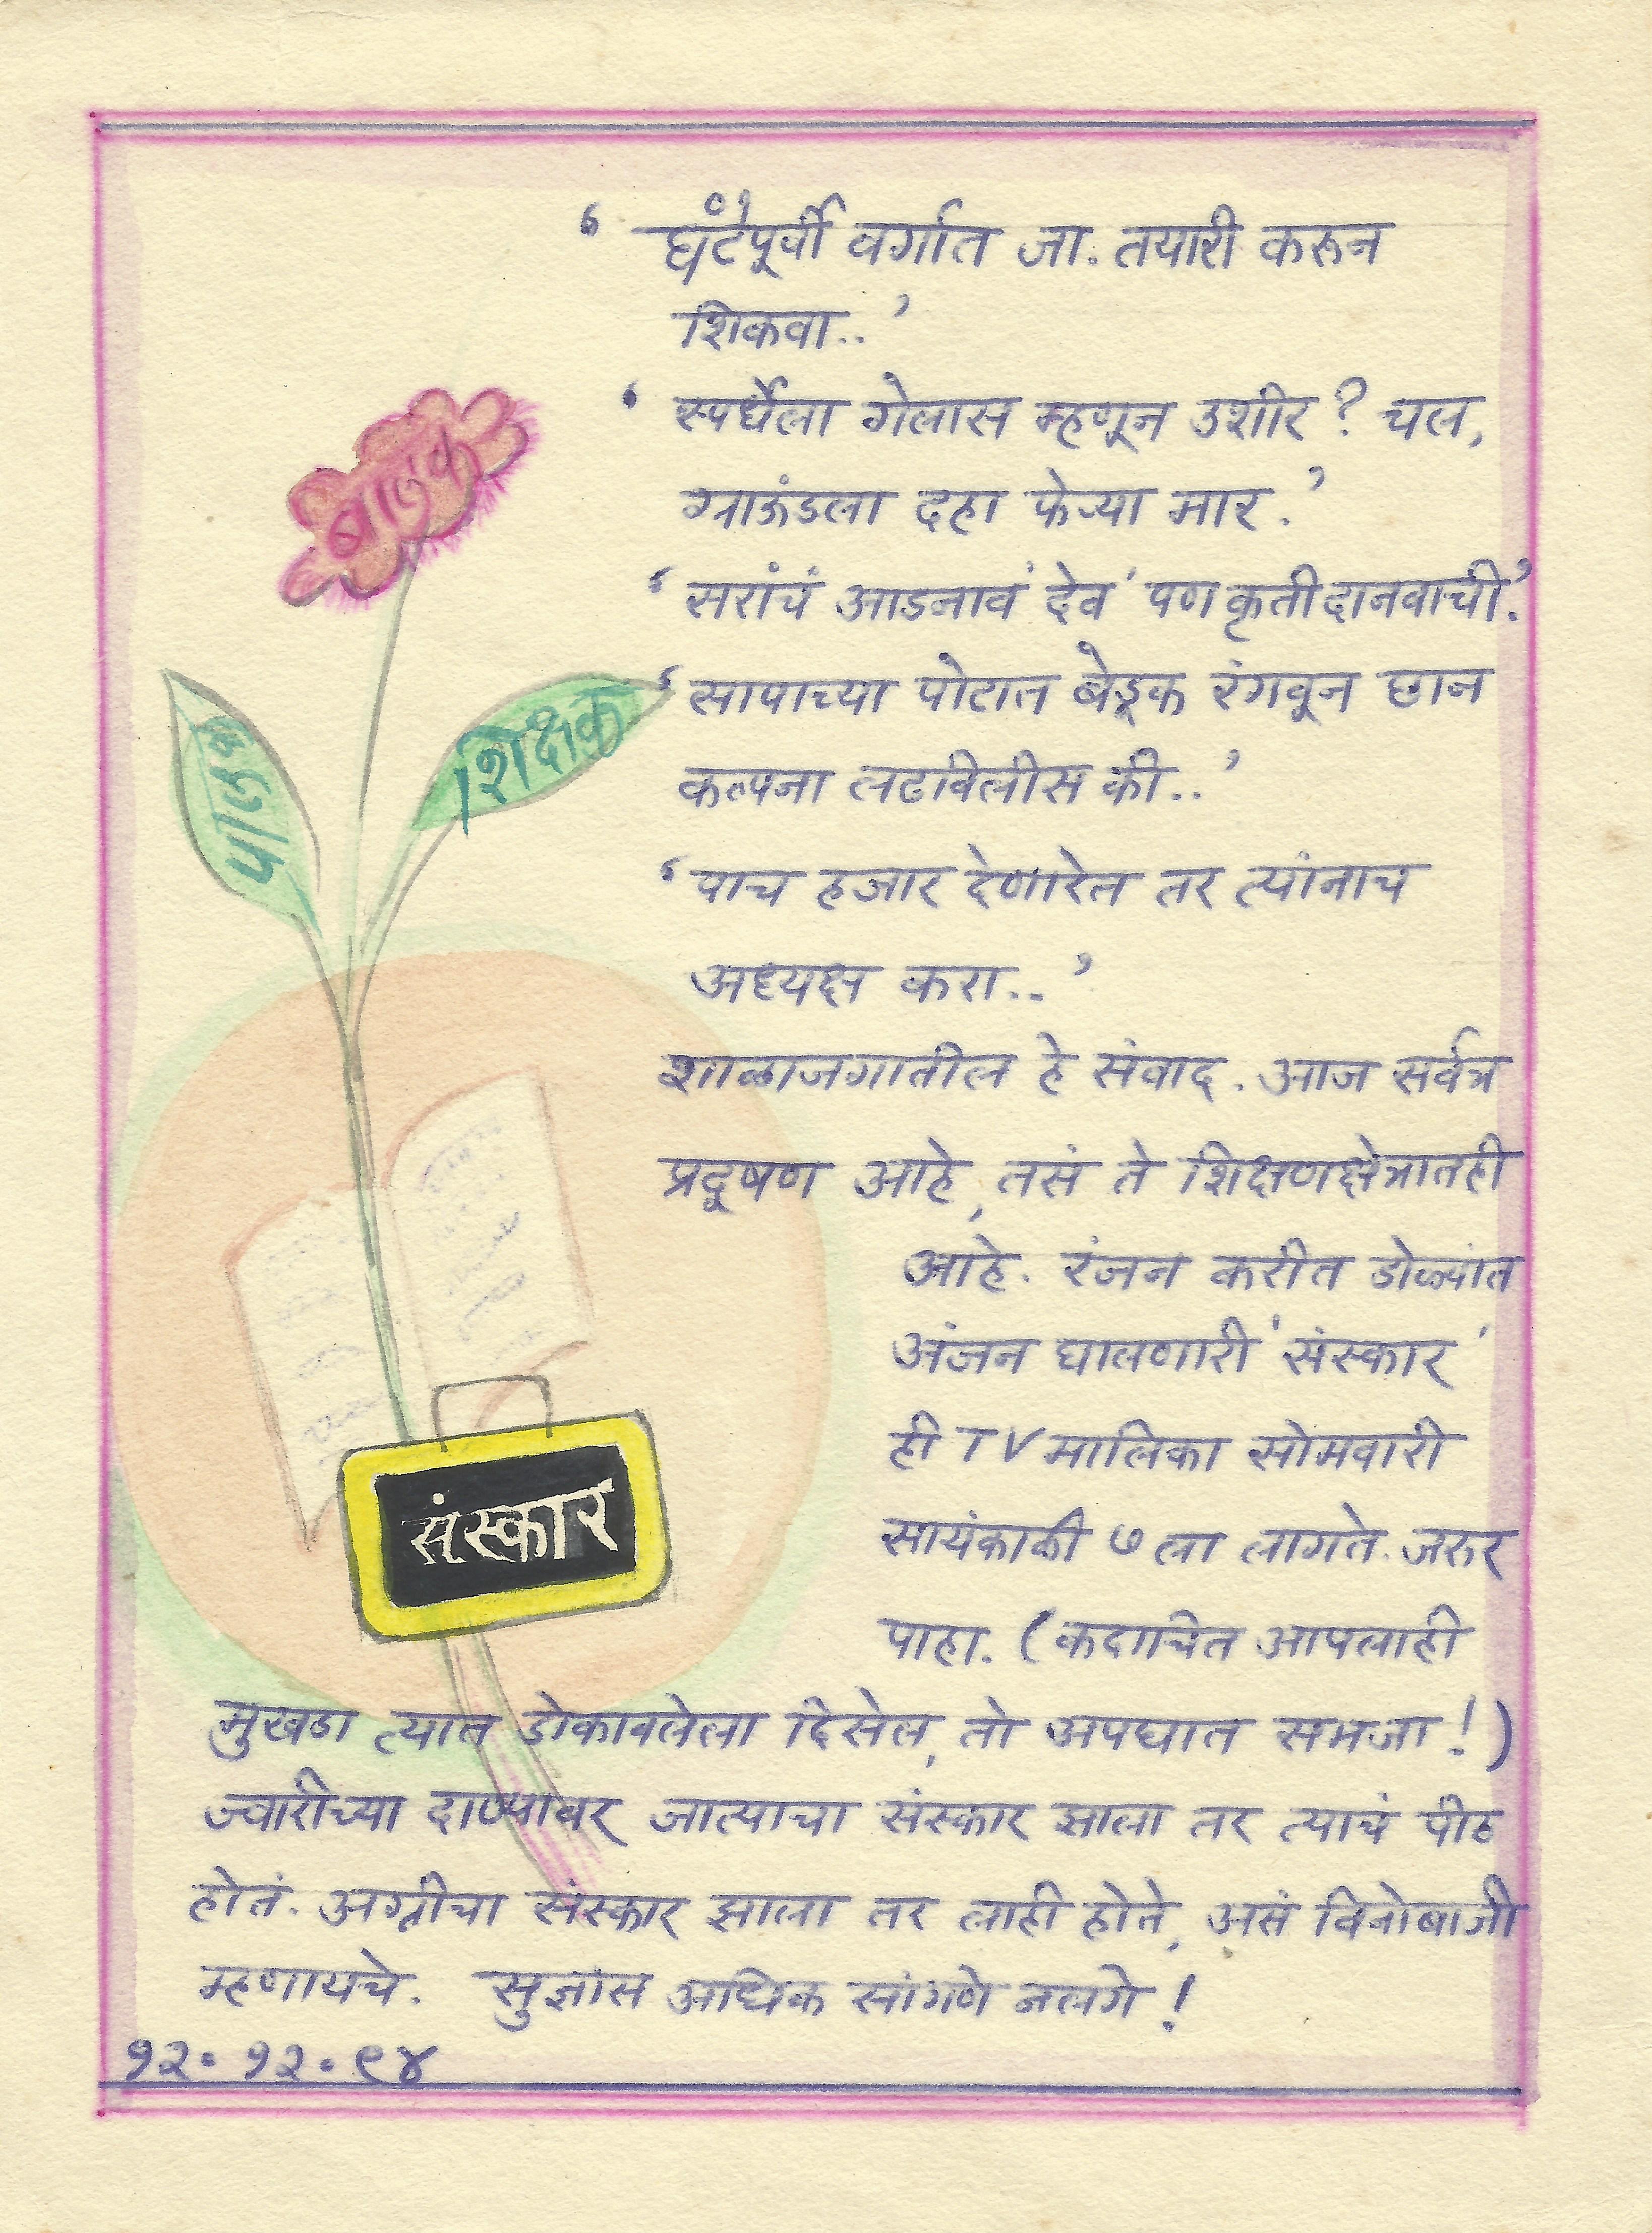 ‘ घंटेपूर्वी वर्गात जा. तयारी करून
शिकवा..’
‘ स्पर्धेला गेलास म्हणून उशीर ? चल,
ग्राऊंडला दहा फेऱ्या मार.’
‘ सरांचं आडनाव 'देव' पण कृती दानवाची.’
‘ सापाच्या पोटात बेडूक रंगवून छान
कल्पना लढविलीस की..’
‘ पाच हजार देणारेत तर त्यांनाच
अध्यक्ष करा..’
शाळाजगातील हे संवाद. आज सर्वत्र
प्रदूषण आहे, तसं ते शिक्षणक्षेत्रातही
आहे. रंजन करीत डोळ्यांत
अंजन घालणारी 'संस्कार'
ही TV मालिका सोमवारी
सायंकाळी ७ ला लागते. जरुर
पाहा. (कदाचित आपलाही
मुखडा त्यात डोकावलेला दिसेल, तो अपघात समजा!)
ज्वारीच्या दाण्यावर जात्याचा संस्कार झाला तर त्याचं पीठ
होतं. अग्नीचा संस्कार झाला तर लाही होते, असं विनोबाजी
म्हणायचे. सुज्ञांस अधिक सांगणे नलगे!
१२. १२. ९४
बालक
पालक
शिक्षक
संस्कार